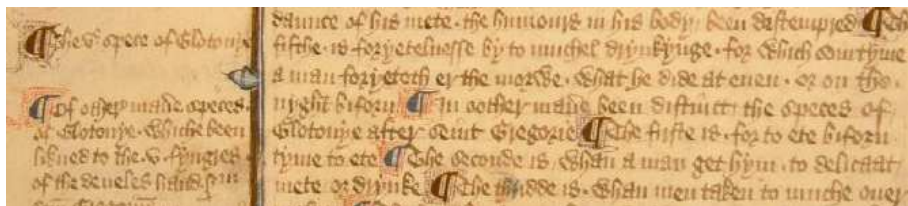 ¶ The .v. spece of Glotonye
¶ Of other manere speces
of Glotonye. Whiche been
likned to the .v. fyngres
of the deueles hand. in
daunce of his mete. the humours in his body been destempred ¶ The
fifthe. is foryetelnesse by to muchel drynkynge. for which somtyme
a man foryeteth er the morwe. what he dide at euen. or on the
nyght biforn ¶ In oother manere been distinct the speces of
Glotonye after Seint Gregorie ¶ The firste is. for to ete biforn
tyme to ete ¶ The seconde is. whan a man get hym. to delicaat
mete or drynke ¶ The thridde is. whan men taken to muche ouer